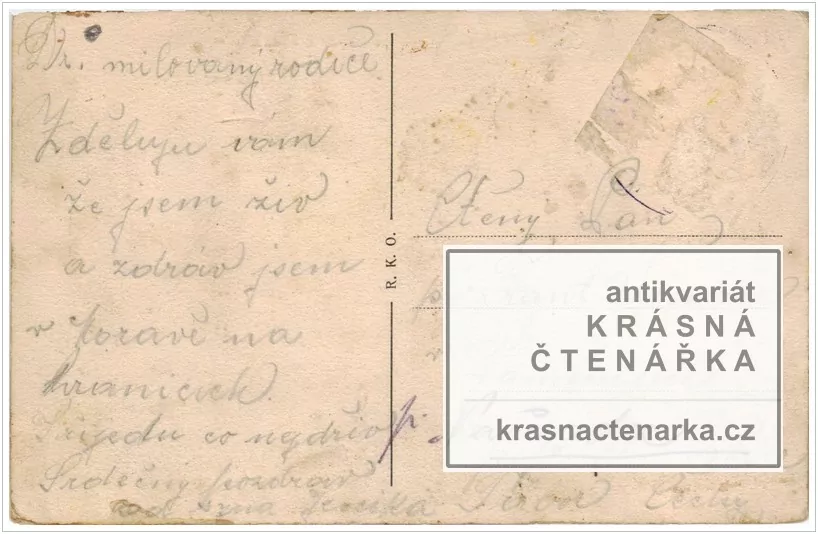 Dr. milovaný rodiče
Zděluju vám
že jsem živ
a zdráv jsem
v na
hranicích.
Prijedu co nejdřív
Srdečný pozdrav
od syna
R. K. O.
Ctěný Pan
v
p.
Čechy
antikvariát
KRÁSNÁ
ČTENÁŘKA
krasnactenarka.cz